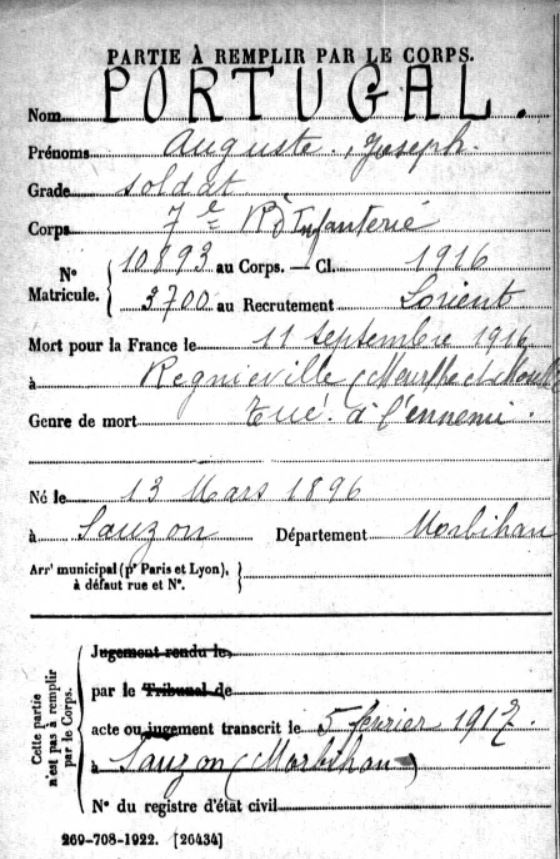 PARTIE À REMPLIR PAR LE CORPS.
Nom PORTUGAL.
Prénoms Auguste, Joseph.
Grade soldat
Corps 7e Rt d'Infanterie
N° Matricule. { 10893 au Corps. — Cl. 1916
3700 au Recrutement Lorient
Mort pour la France le 11 septembre 1916
à Regnieville (Meurthe et Mos
Genre de mort Tué à l'ennemi.
Né le 13 Mars 1896
à Sauzon Département Morbihan
Arrt municipal (pr Paris et Lyon), }
à défaut rue et N°.
Cette partie n'est pas à remplir par le Corps.
Jugement rendu le
par le Tribunal de
acte ou jugement transcrit le 5 février 1917.
à Sauzon (Morbihan)
N° du registre d'état civil
269-708-1922. [26434]